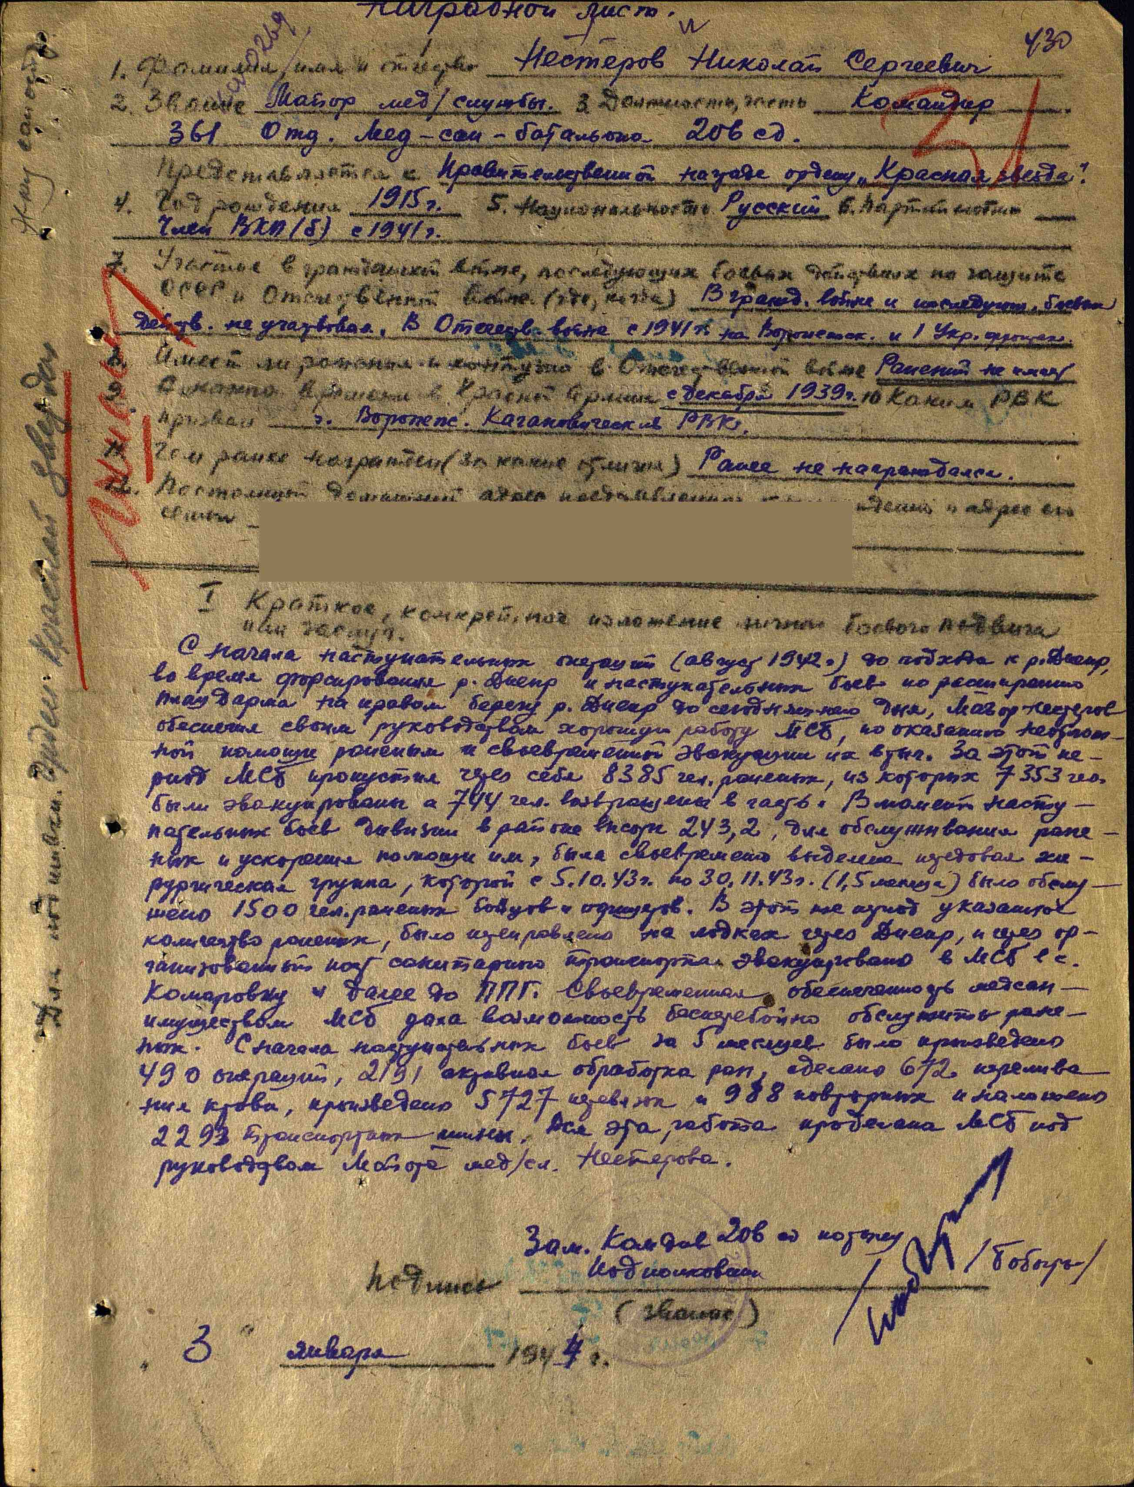 Наградной лист.
430
1. Фамилия, имя и отчество Нестеров Николай Сергеевич
2. Звание Майор мед/службы. 3. Должность, часть Командир
361 Отд. Мед-сан-батальона 206 сд.
Представляется к Правительственной награде ордену „Красная звезда".
4. Год рождения 1915 г. 5. Национальность Русский 6. Партийность
Член ВКП(б) с 1941 г.
7. Участие в гражданской войне, последующих боевых действиях по защите
СССР и Отечественной войне (где, когда) В гражд. войне и последующ. боевых
действ. не участвовал. В Отечеств. войне с 1941 г. на Воронежск. и 1 Укр. фронтах
8. Имеет ли ранения и контузии в Отечественной войне Ранений не имеет
9. С какого времени в Красной Армии с декабря 1939 г. 10 Каким РВК
призван г. Воронеж. Кагановическим РВК.
11. Чем ранее награжден (за какие отличия) Ранее не награждался.
12. Постоянный домашний адрес представляемого к и адрес его
семьи
I Краткое, конкретное изложение личного боевого подвига
или заслуг.
С начала наступательных операций (август 1942 г.) до подхода к р. Днепр,
во время форсирования р. Днепр и наступательных боев по расширению
плацдарма на правом берегу р. Днепр до сегодняшнего дня, Майор Нестеров
обеспечил своим руководством хорошую работу МСБ, по оказанию неотлож-
ной помощи раненым и своевременной эвакуации их в тыл. За этот пе-
риод МСБ пропустил через себя 8385 чел. раненых, из которых 7353 чел.
были эвакуированы а 744 чел. возвращены в часть. В момент насту-
пательных боев дивизии в районе высоты 243,2, для обслуживания ране-
ных и ускорения помощи им, была своевременно выделена передовая хи-
рургическая группа, которой с 5.10.43 г. по 30.11.43 г. (1,5 месяца) было обслу-
жено 1500 чел. раненых бойцов и офицеров. В этот же период указанное
количество раненых, было переправлено на лодках через Днепр, и через ор-
ганизованный санитарного транспорта эвакуировано в МСБ в с.
Комаровку и далее до ППГ. Своевременная обеспеченность медсан-
имуществом МСБ дала возможность бесперебойно обслужить ране-
ных. С начала наступательных боев за 5 месяцев было произведено
490 операций, 2191 активная обработка ран, сделано 672 перелива-
ния крови, произведено 5727 перевязок и 988 повторных и наложено
2293 транспортных шины. Вся эта работа проделана МСБ под
руководством Майора мед/сл. Нестерова.
Зам. Комдив 206 сд по тылу
Подпись Подполковник /Бобоир/
(звание)
„3" января 1944 г.
Для отметки. Орден Красной Звезды